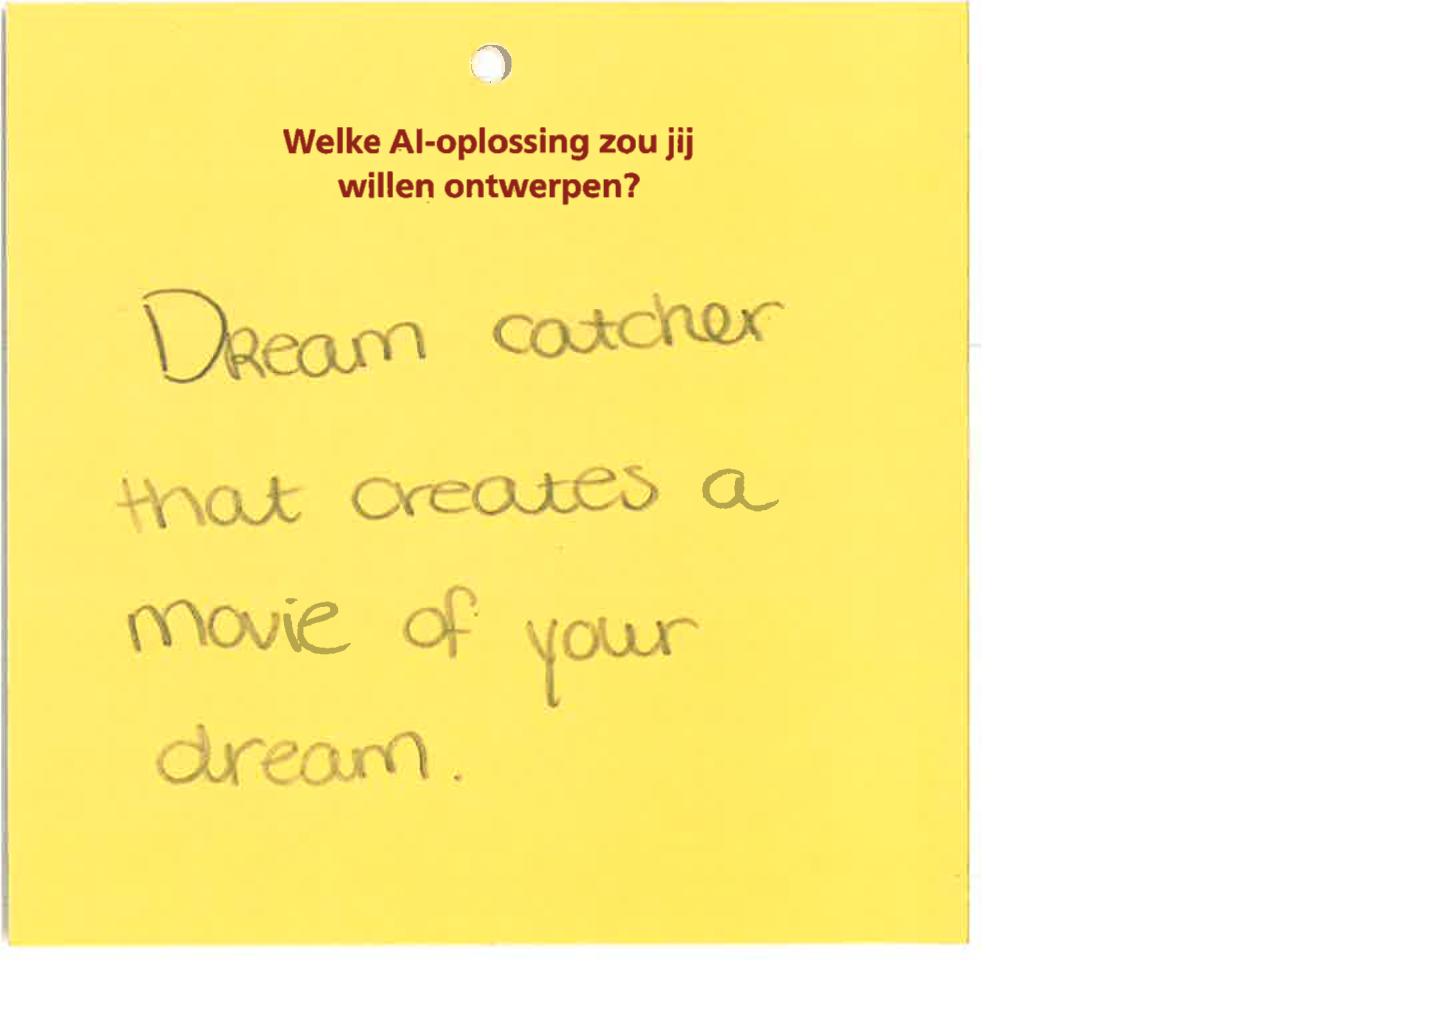 Welke AI-oplossing zou jij
willen ontwerpen?
Dream catcher
that creates a
movie of your
dream.